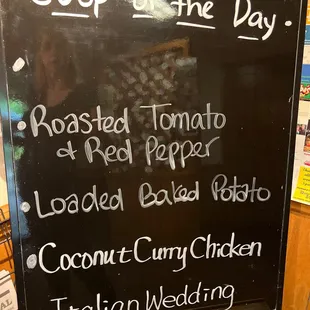 Soup of the Day.
• Roasted Tomato
& Red Pepper
• Loaded Baked Potato
• Coconut Curry Chicken
Italian Wedding